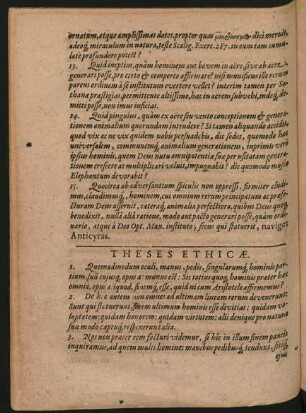 ornatum, atque amplissimas dotes, propter quas dici meruit,
adeoq́; miraculum in natura, teste Scalig. Exerc. 287. in eum tam cumu-
latè profundere potest?
13. Quid ineptius, quàm hominem aut bovem in aëre, sive ab aëre
generari posse, pro certo & comperto affirmare? nisi munificus ille rerum
parens ordinem à se institutum evertere vellet? interim tamen per
thana præstigias, permittente altissimo, hæc in aerem subvehi, indeq́; de-
mitti posse, non imus inficias.
14. Quid pinguius, quàm ex aëre seu vento conceptionem & genera-
tionem animalium quorundam includere? Si tamen aliquando accidit,
quod vix ac ne vix quidem nobis persuadebis, dic sodes, quomodo hac
universalem, communemq́; animalium generationem, inprimis verò
ipsius hominis, quem Deus nutu omnipotentia sua per usitatam genera-
tionem crescere ac multiplicari voluit, impugnabis? dic quomodo muscâ
Elephantum devorabit?
15. Quocirca ab adversantium spiculis non oppressi, firmiter conclu-
dimus, claudimusq́;, hominem, cui omnium rerum principatum ac præfe-
cturam Deus asseruit, cæteraq́; animalia perfectiora, quibus Deus quoq́;
benedixit, nullâ aliâ ratione, modo ant pacto generari posse, quàm ordi-
nario, atque à Deo Opt. Max. instituto; siem qui statoverit, naviget
Anticyras.
THESES ETHICÆ.
1. Quemadmodum oculi, manus, pedis, singularumq́; hominis par-
tium, suū cujusq́; opus & munus est: Sic totius quoq́; hominis præter hæc
omnia, opus aliquod, finemq́; esse, quid ni tecum Aristoteles affirmemus?
2. De hoc autem non omnes ad ultimam lineam rerum devenerunt.
Sunt qui existimant, finem ultimum hominis esse divitias: quidam vo-
luptatem: quidam honorem: quidam virtutem: alii denique pro natura
sua modo captuq́; responderunt alia.
3. Nos non præter rem facturi videmur, si hic in illum finem paucis
inquiramus, ad quem multi homines manibus pedibusq́; tendunt, sitiq́;
ejus